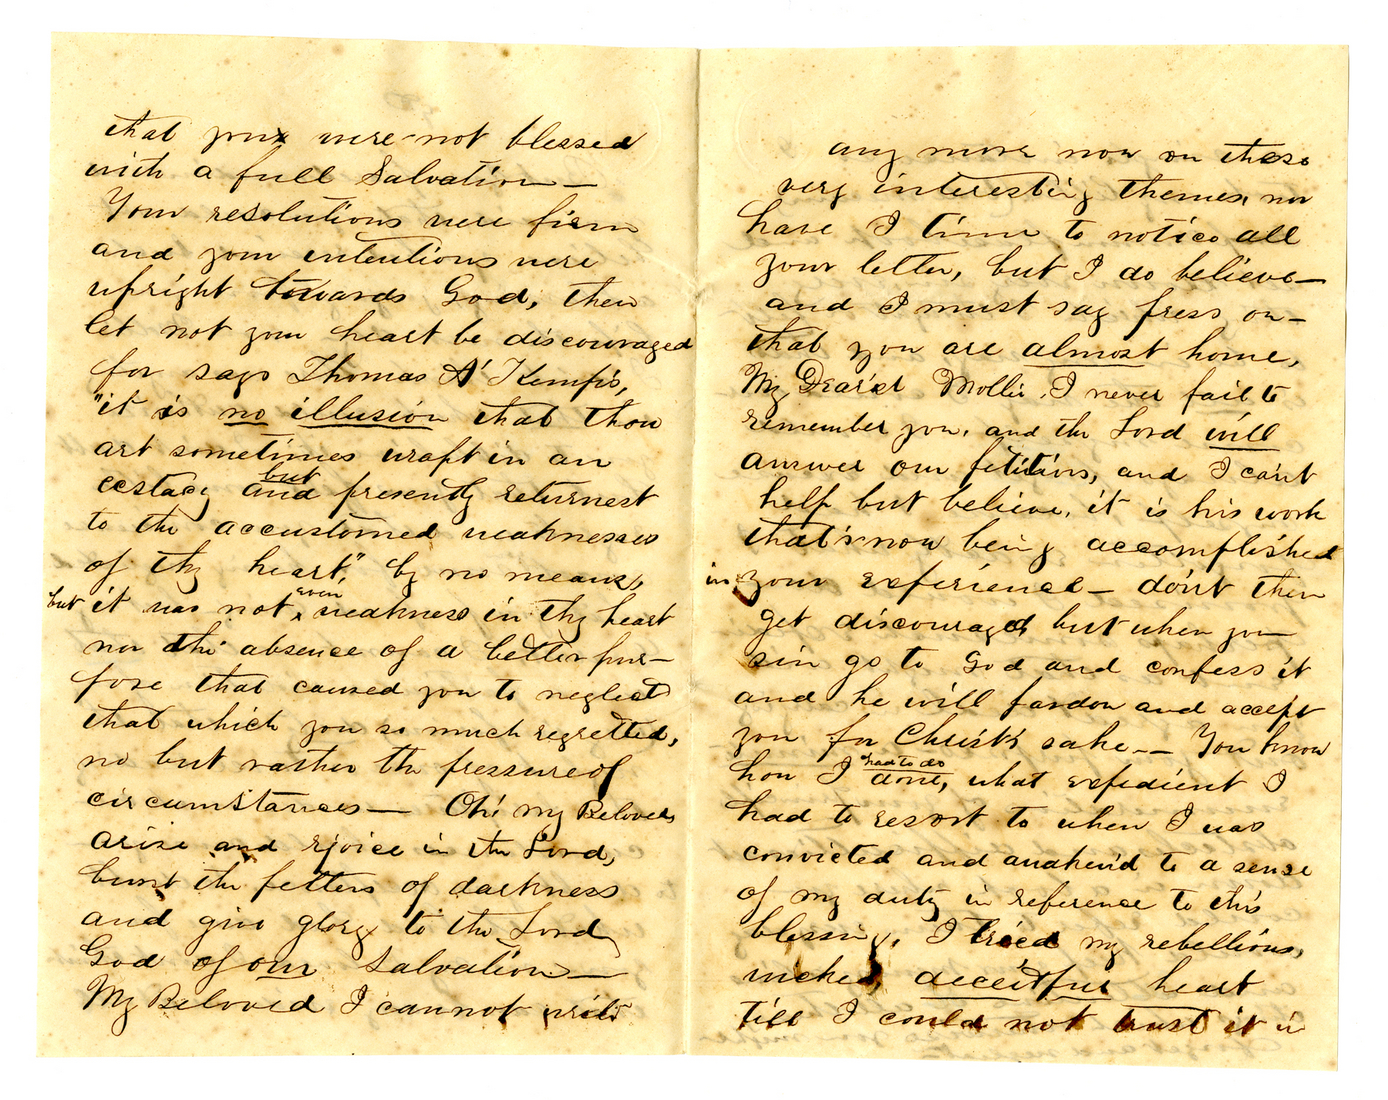 that you were not blessed
with a full Salvation—
Your resolutions were firm
and your intentions were
upright towards God, then
let not your heart be discouraged
for says Thomas A' Kempis,
"it is no illusion that thou
art sometimes wrapt in an
but
ecstacy and presently returnest
to the accustomed weaknesses
of thy heart", by no means,
even
but it was not weakness in thy heart
nor the absence of a better pur-
pose that caused you to neglect
that which you so much regretted,
no but rather the pressure of
circumstances— Oh! my Beloved
arise and rejoice in the Lord,
burst the fetters of darkness
and give glory to the Lord
God of our Salvation—
My Beloved I cannot write
any more now on these
very interesting themes, nor
have I time to notice all
your letter, but I do believe—
and I must say press on—
that you are almost home,
My Dearest Mollie, I never fail to
remember you, and the Lord will
answer our petitions, and I can't
help but believe, it is his work
that's now being accomplished
in your experience— don't then
get discouraged but when you
sin go to God and confess it
and he will pardon and accept
you for Christ's sake— You know
had to do
how I done, what expedient I
had to resort to when I was
convicted and awaken'd to a sense
of my duty in reference to this
blessing. I tried my rebellious,
wicked, deceitful heart
till I could not trust it in